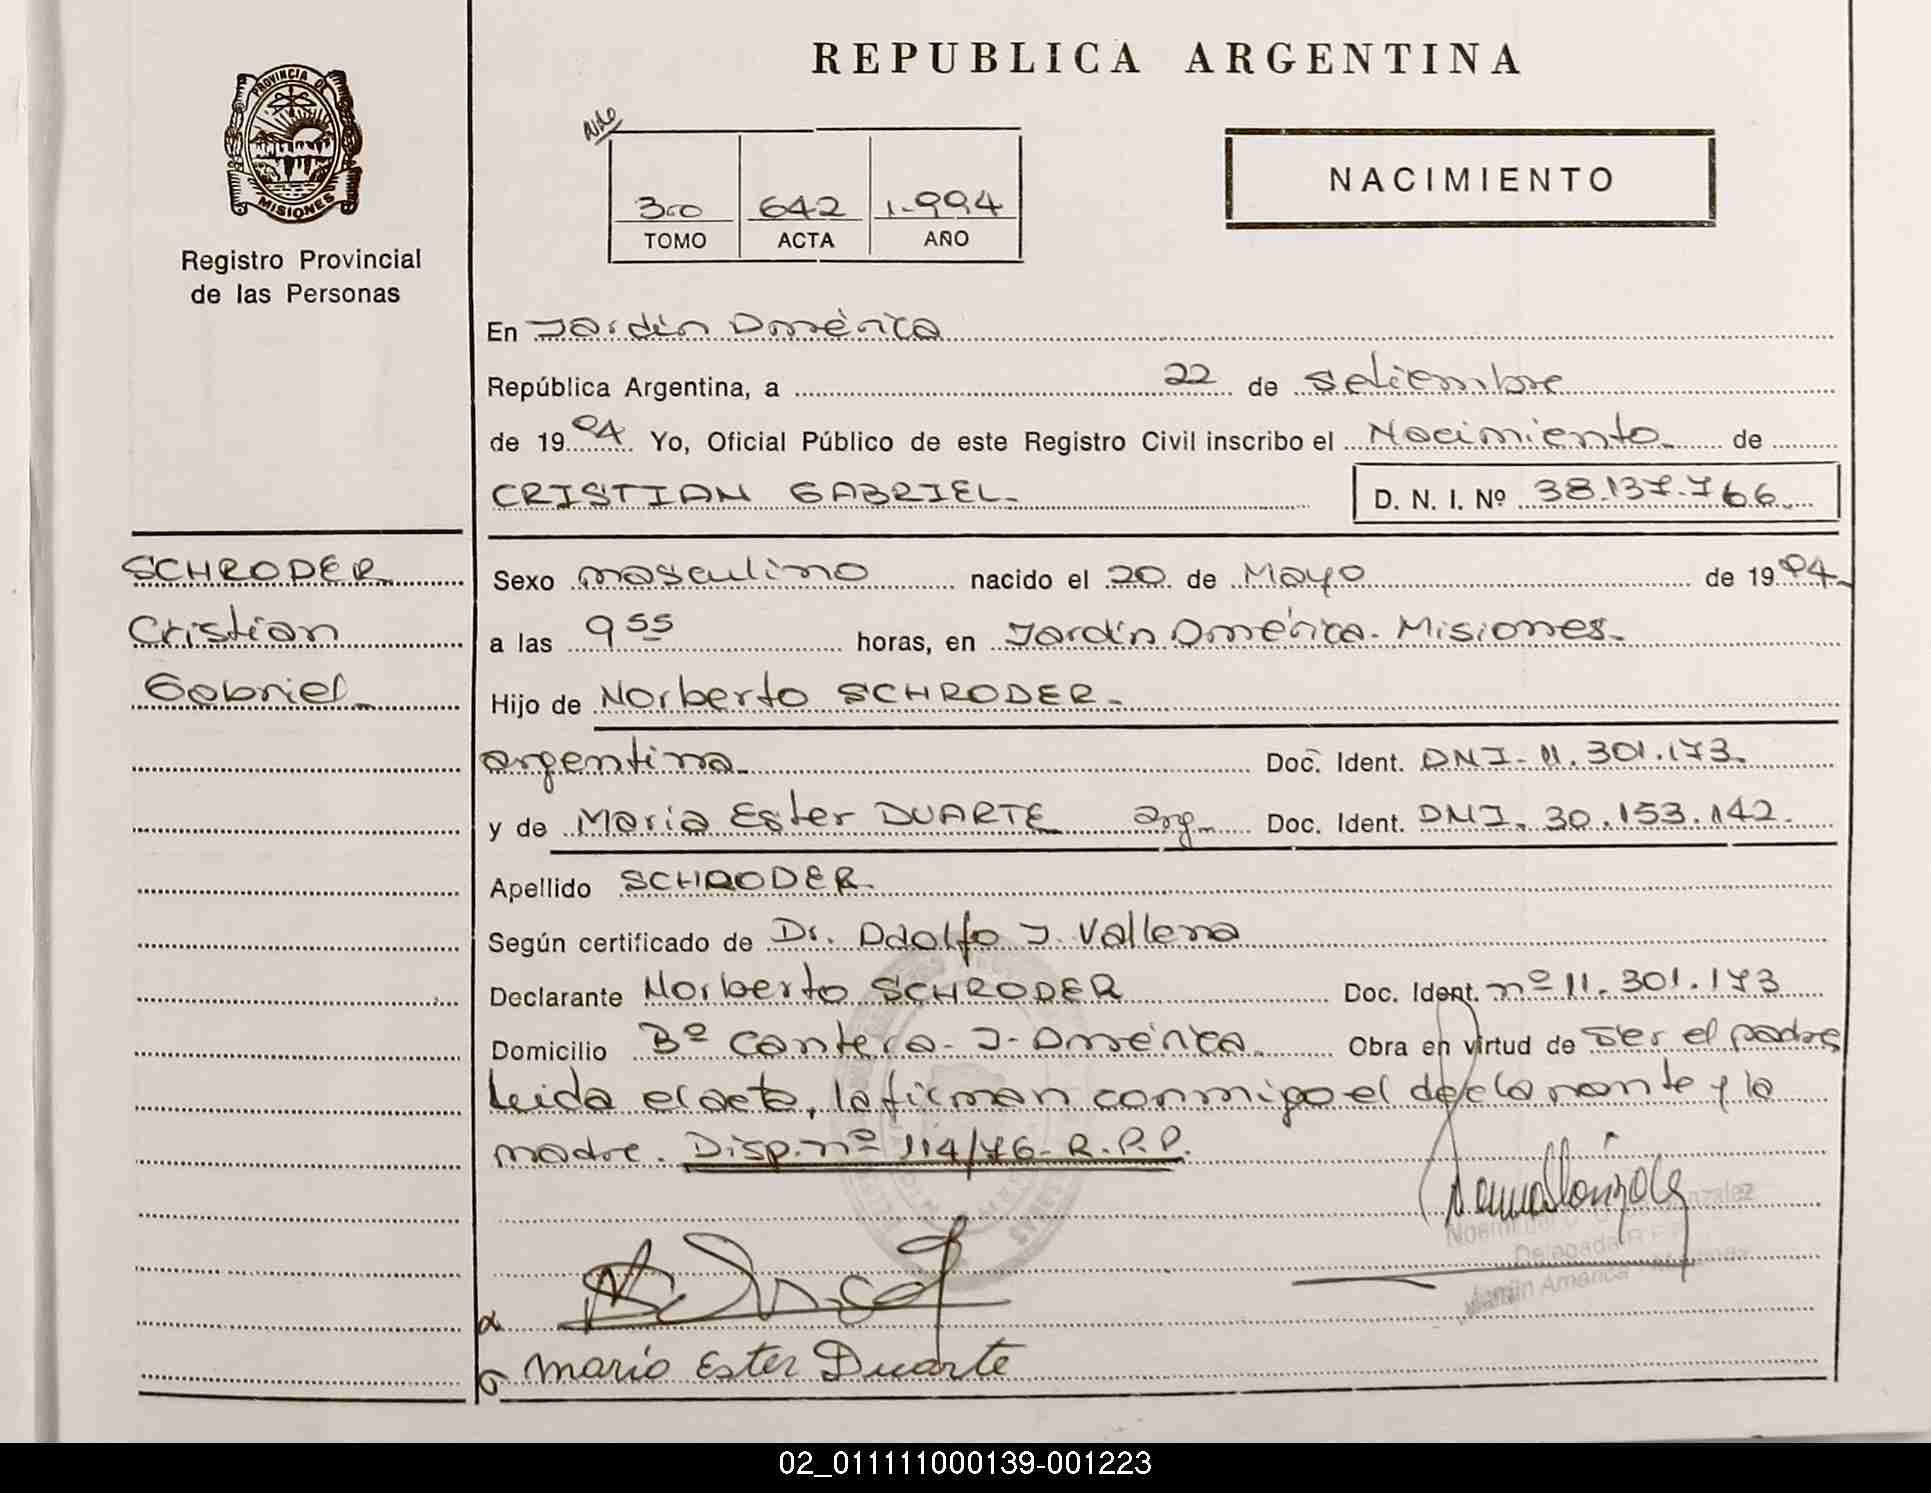 REPUBLICA ARGENTINA
PROVINCIA DE
MISIONES
Registro Provincial
de las Personas
300 642 1.994
TOMO ACTA AÑO
NACIMIENTO
En Jardín América
República Argentina, a 22 de setiembre
de 1994. Yo, Oficial Público de este Registro Civil inscribo el Nacimiento de
CRISTIAN GABRIEL.
D. N. I. Nº 38.137.766
SCHRODER
Cristian
Gabriel
Sexo masculino nacido el 20 de Mayo de 1994
a las 9 55 horas, en Jardín América. Misiones.
Hijo de Norberto SCHRODER.
argentina. Doc. Ident. DNI. 11.301.173.
y de Maria Ester DUARTE arg. Doc. Ident. DNI. 30.153.142.
Apellido SCHRODER.
Según certificado de Dr. Adolfo J. Vallena
Declarante Norberto SCHRODER Doc. Ident. nº 11.301.173
Domicilio Bº Cantera - J. América. Obra en virtud de ser el padre
Leida el acta, la firman conmigo el declarante y la
madre. Disp. nº 114/76 - R.P.P.
Delegada
Jardín América
Maria Ester Duarte
02_011111000139-001223